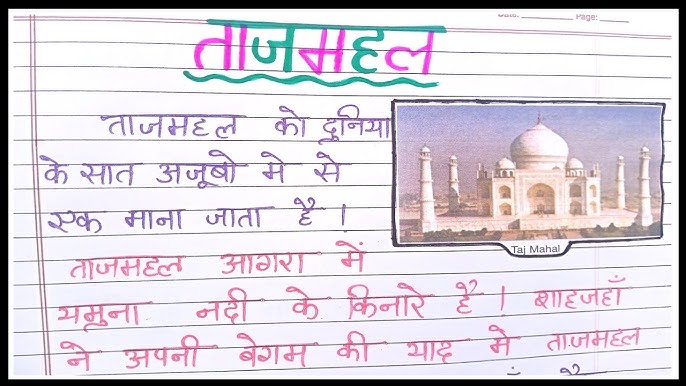 Date: Page:
ताजमहल
ताजमहल को दुनिया
के सात अजूबो मे से
एक माना जाता है ।
Taj Mahal
ताजमहल आगरा में
यमुना नदी के किनारे है । शाहजहाँ
ने अपनी बेगम की याद मे ताजमहल